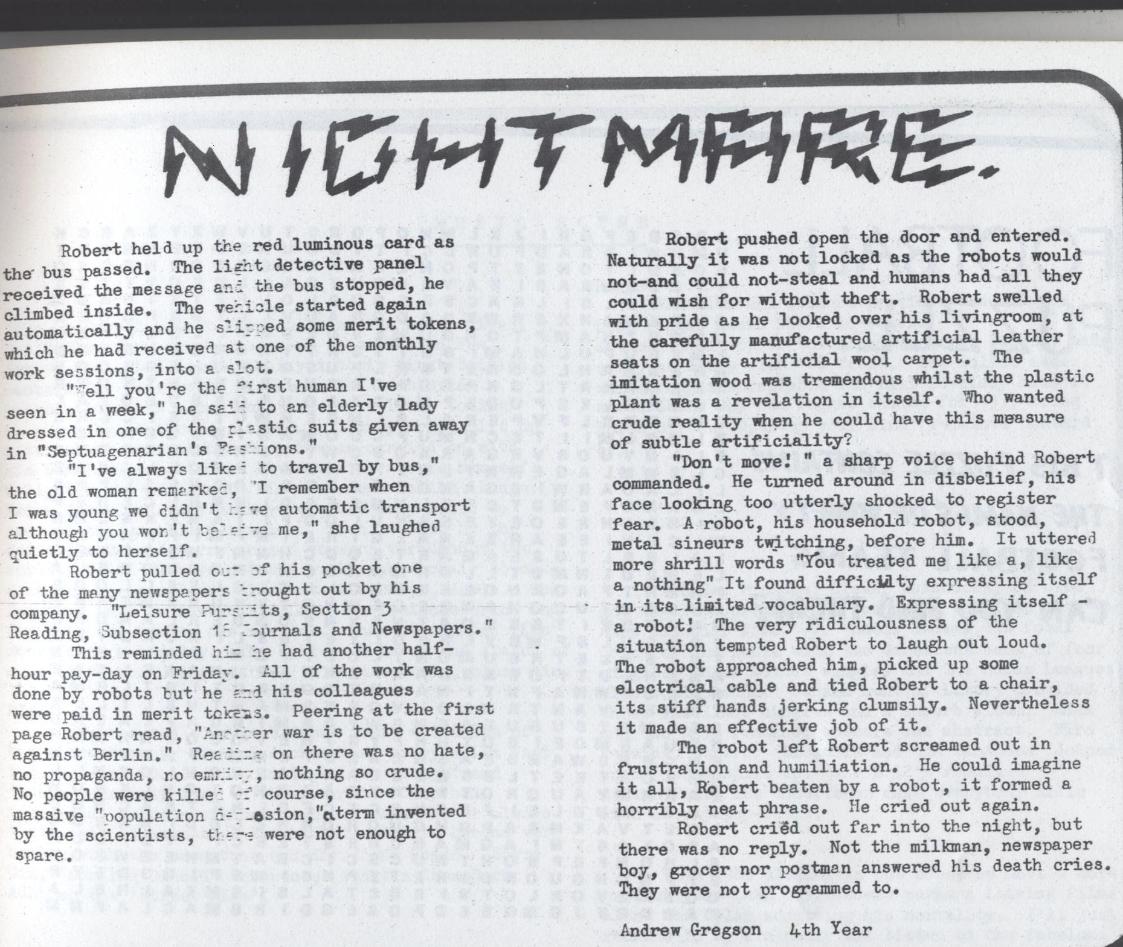 NIGHTMARE.
Robert held up the red luminous card as
the bus passed. The light detective panel
received the message and the bus stopped, he
climbed inside. The vehicle started again
automatically and he slipped some merit tokens,
which he had received at one of the monthly
work sessions, into a slot.
"Well you're the first human I've
seen in a week," he said to an elderly lady
dressed in one of the plastic suits given away
in "Septuagenarian's Fashions."
"I've always liked to travel by bus,"
the old woman remarked, "I remember when
I was young we didn't have automatic transport
although you won't beleive me," she laughed
quietly to herself.
Robert pulled out of his pocket one
of the many newspapers brought out by his
company. "Leisure Pursuits, Section 3
Reading, Subsection Journals and Newspapers."
This reminded him he had another half-
hour pay-day on Friday. All of the work was
done by robots but he and his colleagues
were paid in merit tokens. Peering at the first
page Robert read, "Another war is to be created
against Berlin." Reading on there was no hate,
no propaganda, no enmity, nothing so crude.
No people were killed of course, since the
massive "population ," a term invented
by the scientists, there were not enough to
spare.
Robert pushed open the door and entered.
Naturally it was not locked as the robots would
not-and could not-steal and humans had all they
could wish for without theft. Robert swelled
with pride as he looked over his livingroom, at
the carefully manufactured artificial leather
seats on the artificial wool carpet. The
imitation wood was tremendous whilst the plastic
plant was a revelation in itself. Who wanted
crude reality when he could have this measure
of subtle artificiality?
"Don't move!" A sharp voice behind Robert
commanded. He turned around in disbelief, his
face looking too utterly shocked to register
fear. A robot, his household robot, stood,
metal sineurs twitching, before him. It uttered
more shrill words "You treated me like a, like
nothing" It found difficulty expressing itself
in its limited vocabulary. Expressing itself -
a robot! The very ridiculousness of the
situation tempted Robert to laugh out loud.
The robot approached him, picked up some
electrical cable and tied Robert to a chair,
its stiff hands jerking clumsily. Nevertheless
it made an effective job of it.
The robot left Robert screamed out in
frustration and humiliation. He could imagine
it all, Robert beaten by a robot, it formed a
horribly neat phrase. He cried out again.
Robert cried out far into the night, but
there was no reply. Not the milkman, newspaper
boy, grocer nor postman answered his death cries.
They were not programmed to.
Andrew Gregson 4th Year